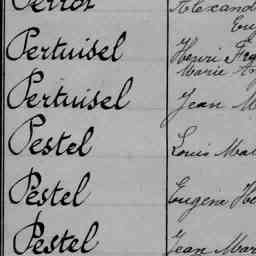 Perrot Alexand
Eug
Pertuisel Henri
Marie
Pertuisel Jean M
Pestel Louis Ma
Pestel Eugène He
Pestel Jean Mar